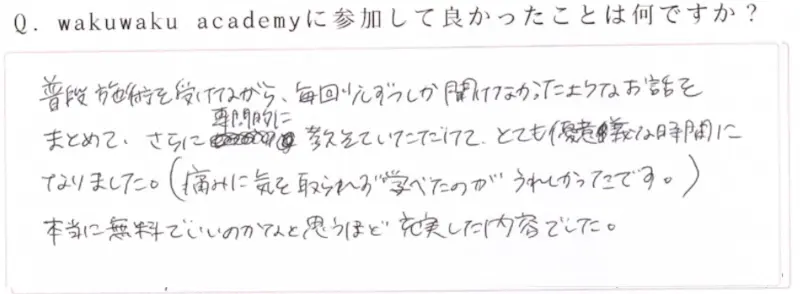 Q. wakuwaku academyに参加して良かったことは何ですか？
普段施術を受けながら、毎回少しずつしか聞けなかったようなお話を
まとめて、さらに専門的に教えていただけて、とても有意義な時間に
なりました。(痛みに気を取られず学べたのがうれしかったです。)
本当に無料でいいのかなと思うほど充実した内容でした。